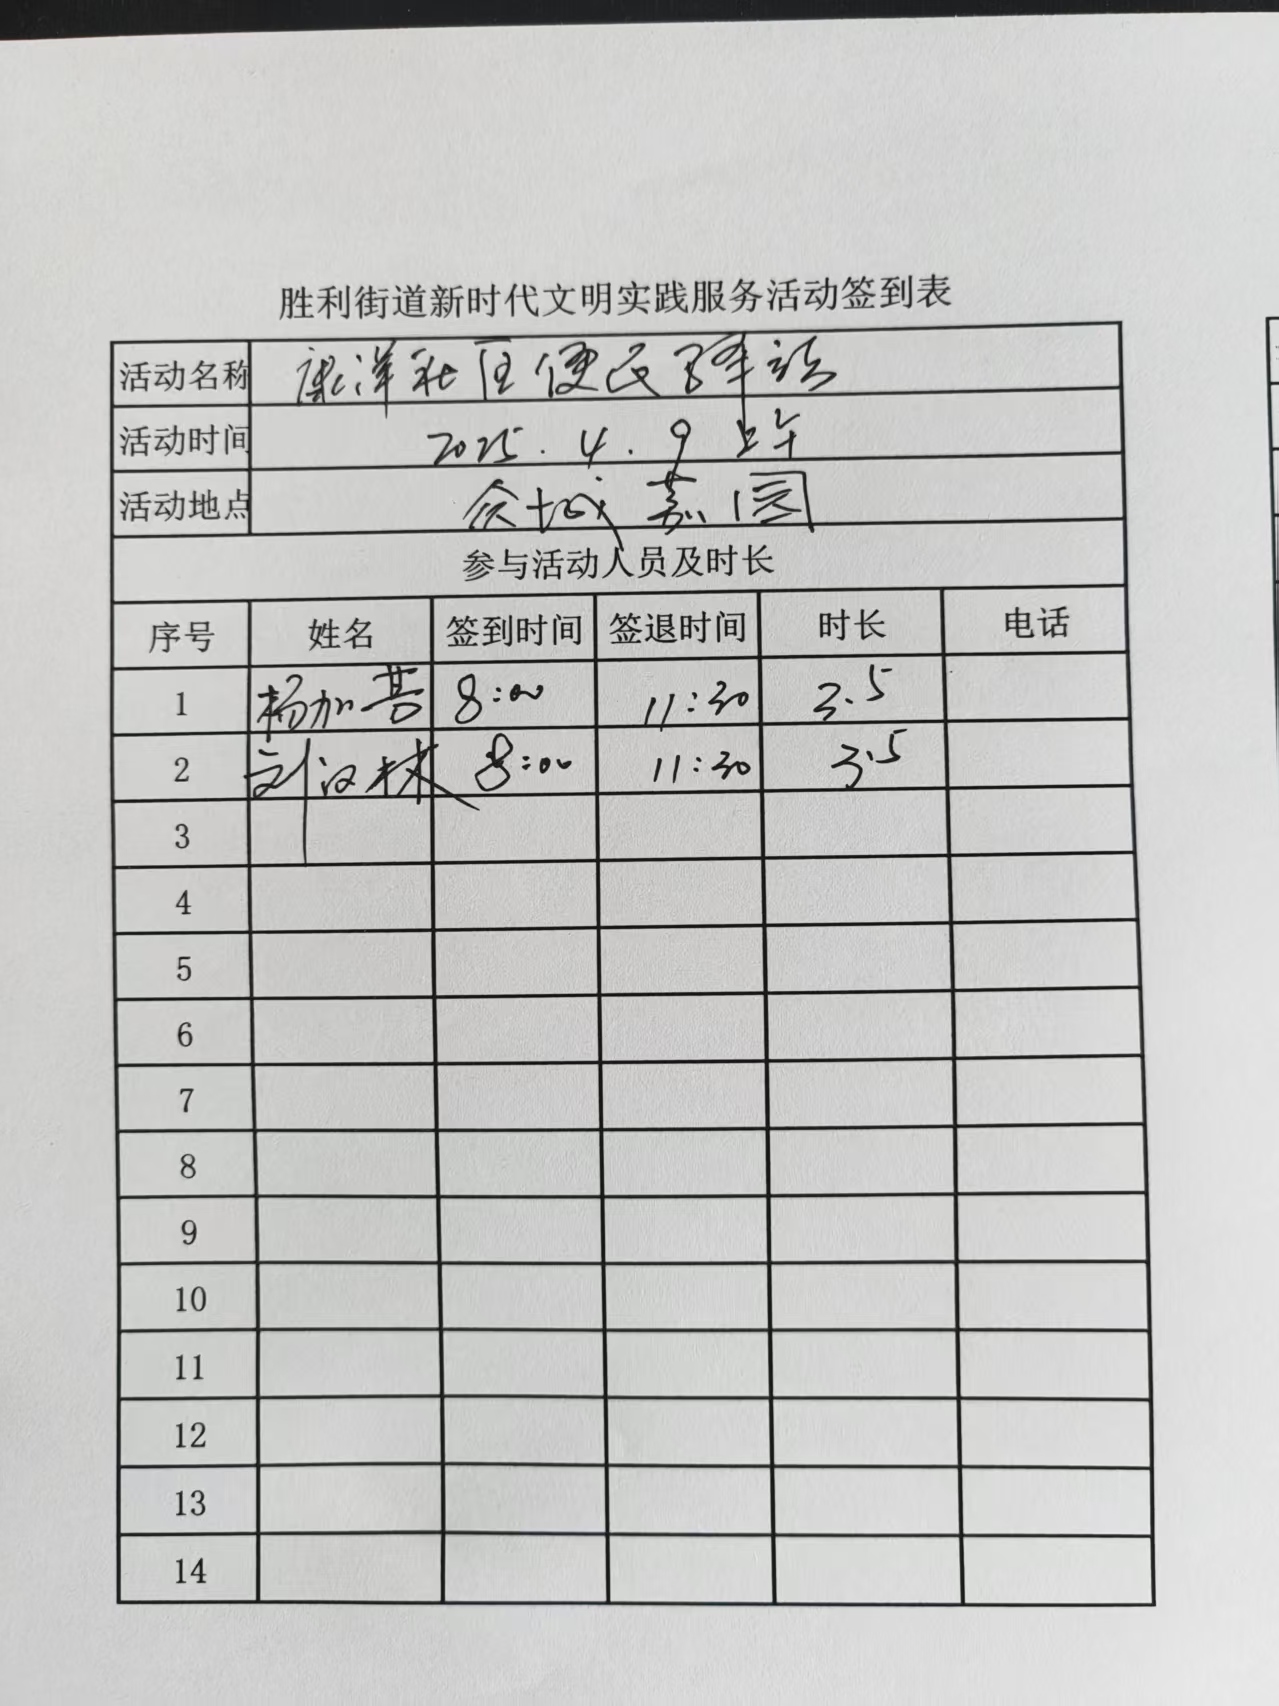 胜利街道新时代文明实践服务活动签到表
活动名称 康洋社区便民驿站
活动时间 2025.4.9上午
活动地点 众城嘉园
参与活动人员及时长
序号 姓名 签到时间 签退时间 时长 电话
1 杨加 8:00 11:30 3.5
2 刘汉林 8:00 11:30 3.5
3
4
5
6
7
8
9
10
11
12
13
14